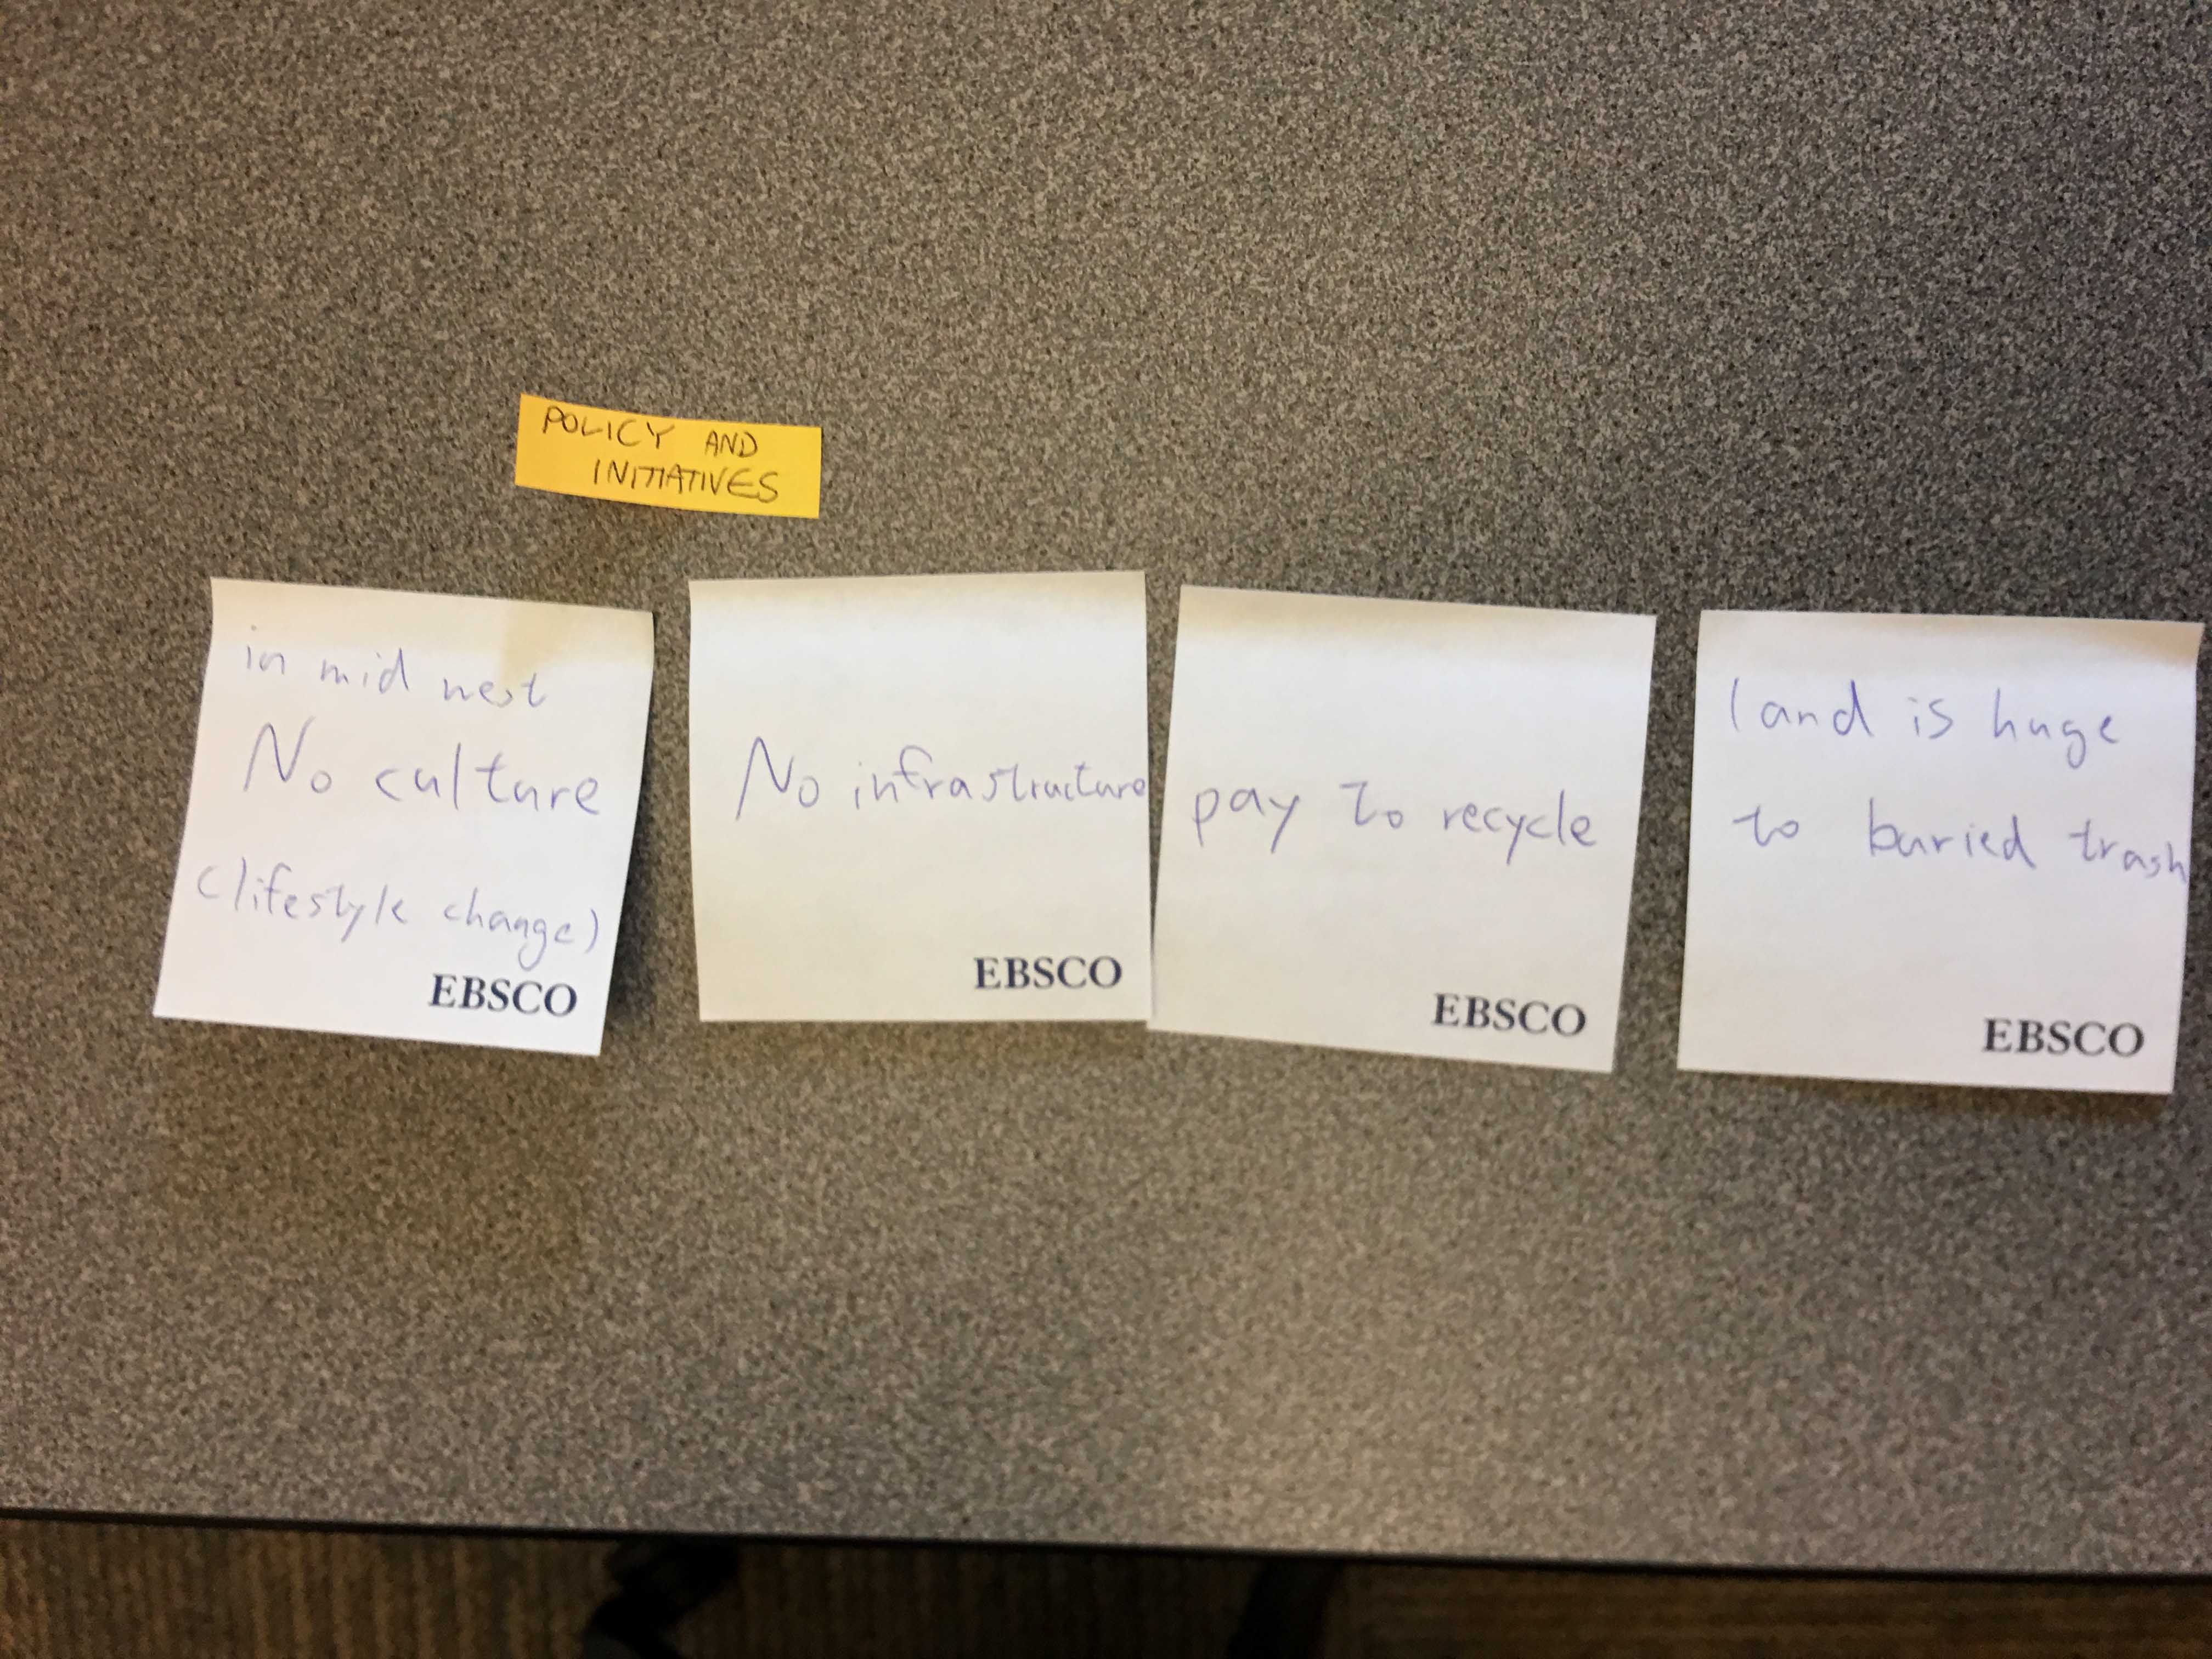 POLICY AND
INITIATIVES
in mid west
No culture
(lifestyle change)
EBSCO
No infrastructure
EBSCO
pay to recycle
EBSCO
land is huge
to buried trash
EBSCO